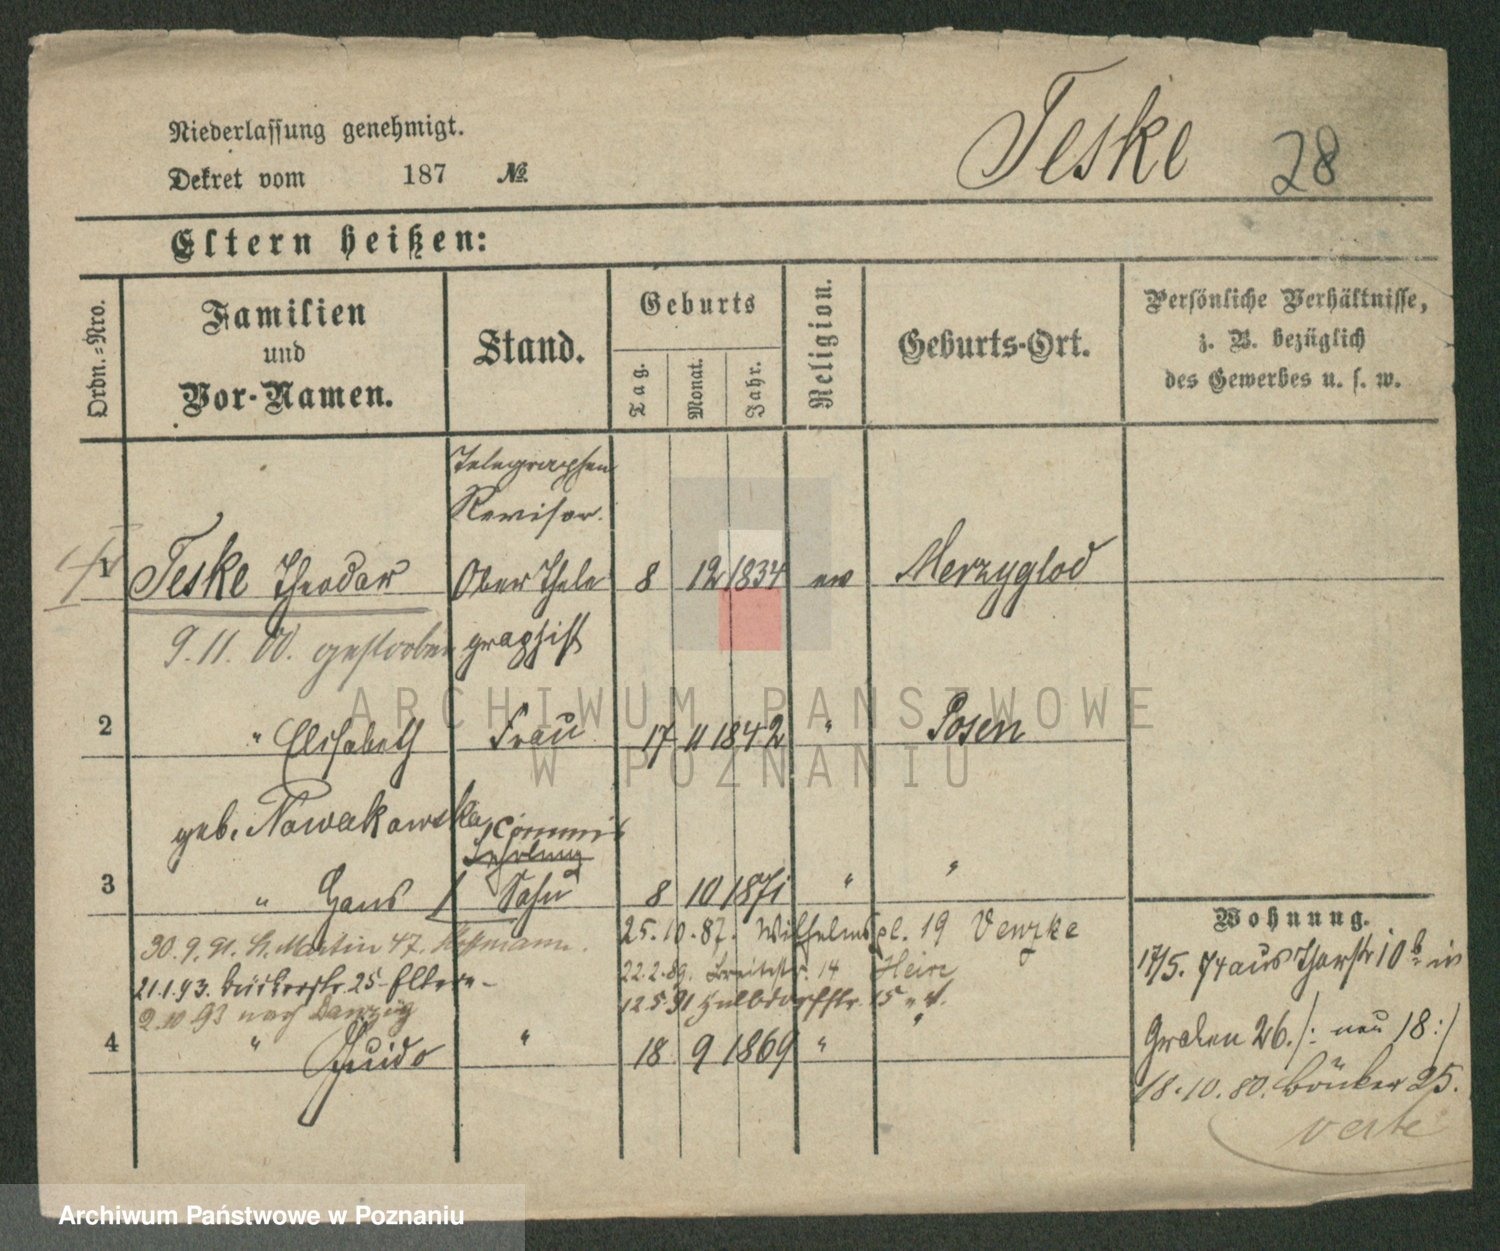 Niederlassung genehmigt.
Dekret vom 187 №
Teske 28
Eltern heißen:
Ordn.=Nro.
Familien
und
Vor-Namen.
Stand.
Geburts
Tag.
Monat.
Jahr.
Religion.
Geburts-Ort.
Persönliche Verhältnisse,
z. B. bezüglich
des Gewerbes u. s. w.
Telegraphen
Revisor.
1 Teske Theodor Ober Tele 8 12 1834 ev Merzyglod
9.11.00. gestorben graphist
2 " Elisabeth Frau 17 11 1842 " Posen
geb. Nowakowska
Commis
Lehrling
3 " Hans Sohn 8 10 1871 " "
Wohnung.
25.10.87. Wilhelmspl. 19 Venzke
30.9.91. St. Martin 47. Hoffmann.
22.2.89. Breitestr. 14 Hein
21.1.93. Bäckerstr. 25 Eltern
12.5.91 Halbdorfstr. 15
2.10 93 nach Danzig
4 " Guido " 18 9 1869 " "
17/5. 74 aus Thorstr 10b in
Graben 26. /: neu 18 :/
18.10.80. Bäcker 25.
verte
ARCHIWUM PAŃSTWOWE
W POZNANIU
Archiwum Państwowe w Poznaniu